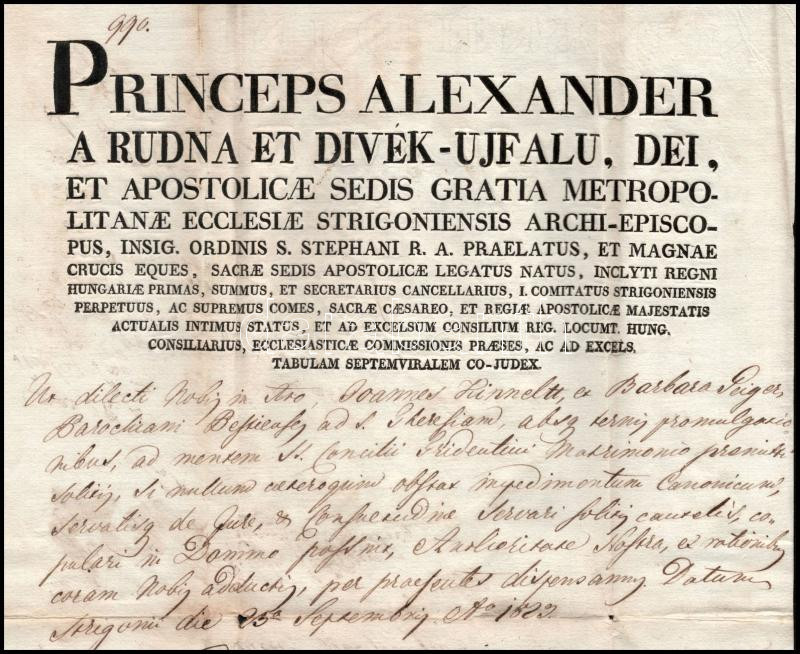 990.
PRINCEPS ALEXANDER
A RUDNA ET DIVÉK-UJFALU, DEI,
ET APOSTOLICÆ SEDIS GRATIA METROPO-
LITANÆ ECCLESIÆ STRIGONIENSIS ARCHI-EPISCO-
PUS, INSIG. ORDINIS S. STEPHANI R. A. PRAELATUS, ET MAGNAE
CRUCIS EQUES, SACRÆ SEDIS APOSTOLICÆ LEGATUS NATUS, INCLYTI REGNI
HUNGARIÆ PRIMAS, SUMMUS, ET SECRETARIUS CANCELLARIUS, I. COMITATUS STRIGONIENSIS
PERPETUUS, AC SUPREMUS COMES, SACRÆ CÆSAREO, ET REGIÆ APOSTOLICÆ MAJESTATIS
ACTUALIS INTIMUS STATUS, ET AD EXCELSUM CONSILIUM REG. LOCUMT. HUNG.
CONSILIARIUS, ECCLESIASTICÆ COMMISSIONIS PRÆSES, AC AD EXCELS.
TABULAM SEPTEMVIRALEM CO-JUDEX.
Ut dilecti Nobis in Xto, Joannes et Barbara Geiger,
Parochiani Pestienses ad S. Theresiam, absq ternis promulgatio-
nibus, ad mentem SS. Concilii Tridentini Matrimonio praemitti
solitis, si nullum caeteroquin obstat impedimentum Canonicum,
servatisq de Jure, & Consuetudine servari solitis cautelis, co-
pulari in Domino possint, Authoritate Nostra, ex rationibus
coram Nobis adductis, per praesentes dispensamus. Datum
Strigonii die 23a Septembris Ao 1823.